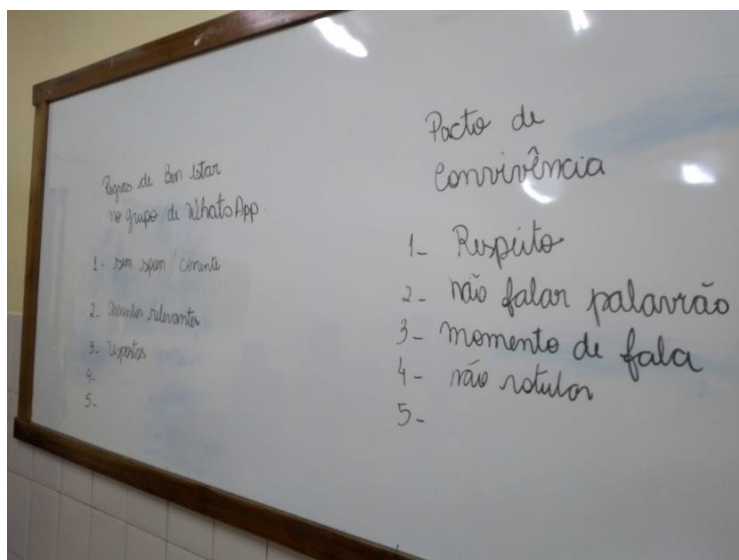 Regras de Bem Estar
no grupo de WhatsApp.
1- sem spam / corrente
2- Assuntos relevantes
3- respostas
4-
5-
Pacto de
Convivência
1- Respeito
2- não falar palavrão
3- momento de fala
4- não rotular
5-